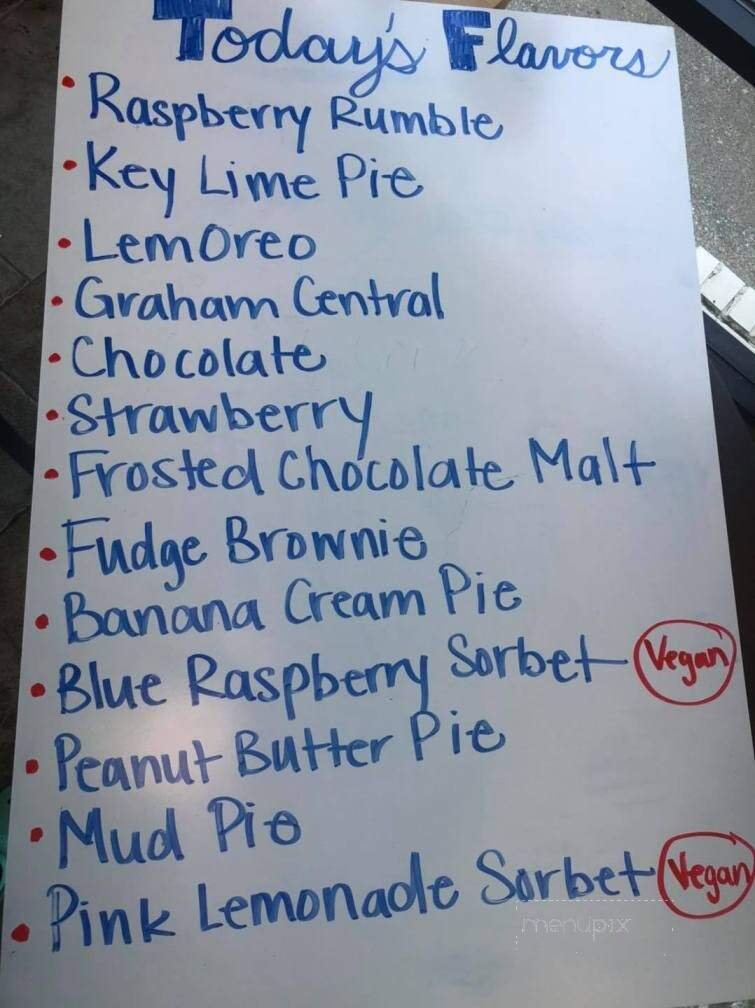 Today's Flavors
• Raspberry Rumble
• Key Lime Pie
• LemOreo
• Graham Central
• Chocolate
• Strawberry
• Frosted Chocolate Malt
• Fudge Brownie
• Banana Cream Pie
• Blue Raspberry Sorbet - Vegan
• Peanut Butter Pie
• Mud Pie
• Pink Lemonade Sorbet Vegan
menupix